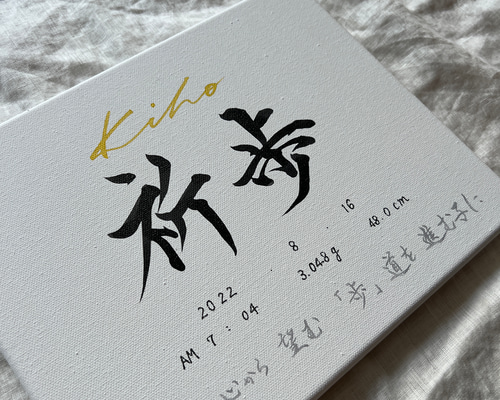 Kiho
祈歩
2022 . 8 . 16
AM 7 : 04 3.048g 48.0cm
心から 望む 「歩」道を 進む子に